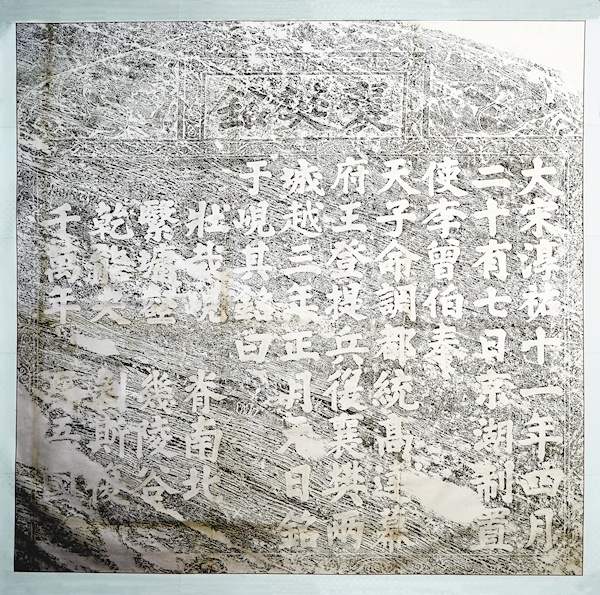 襄樊銘
大宋淳祐十一年四月
二十有七日京湖制置
使李曾伯奉
天子命調都統高達幕
府王登提兵復襄樊兩
城越三年正月元日銘
于峴其銘曰
壯哉峴 脊南北
繄墉壑 幾陵谷
乾能夬 剝斯復
千萬年